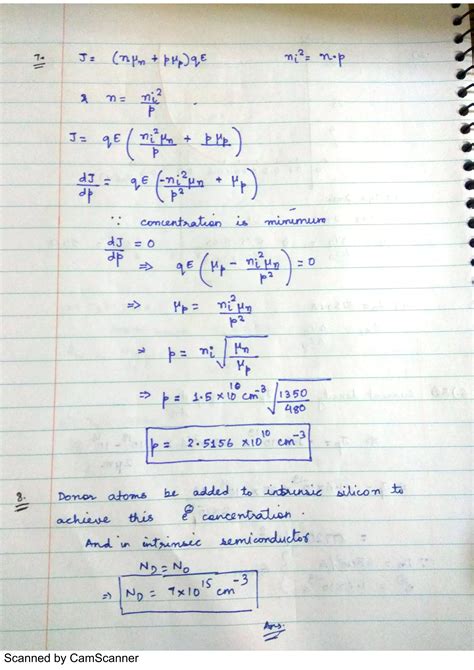 7. J = (nμn + pμp)qE   ni² = n·p
& n = ni²/p
J = qE (ni²μn/p + pμp)
dJ/dp = qE (-ni²μn/p² + μp)
∵ concentration is minimum
dJ/dp = 0
⇒ qE (μp - ni²μn/p²) = 0
⇒ μp = ni²μn/p²
⇒ p = ni √(μn/μp)
⇒ p = 1.5 × 10¹⁰ cm⁻³ √(1350/480)
p = 2.5156 × 10¹⁰ cm⁻³
8. Donor atoms be added to intrinsic silicon to
achieve this e⊖ concentration.
And in intrinsic semiconductor
ND = NO
⇒ ND = 7×10¹⁵ cm⁻³
Ans.
Scanned by CamScanner